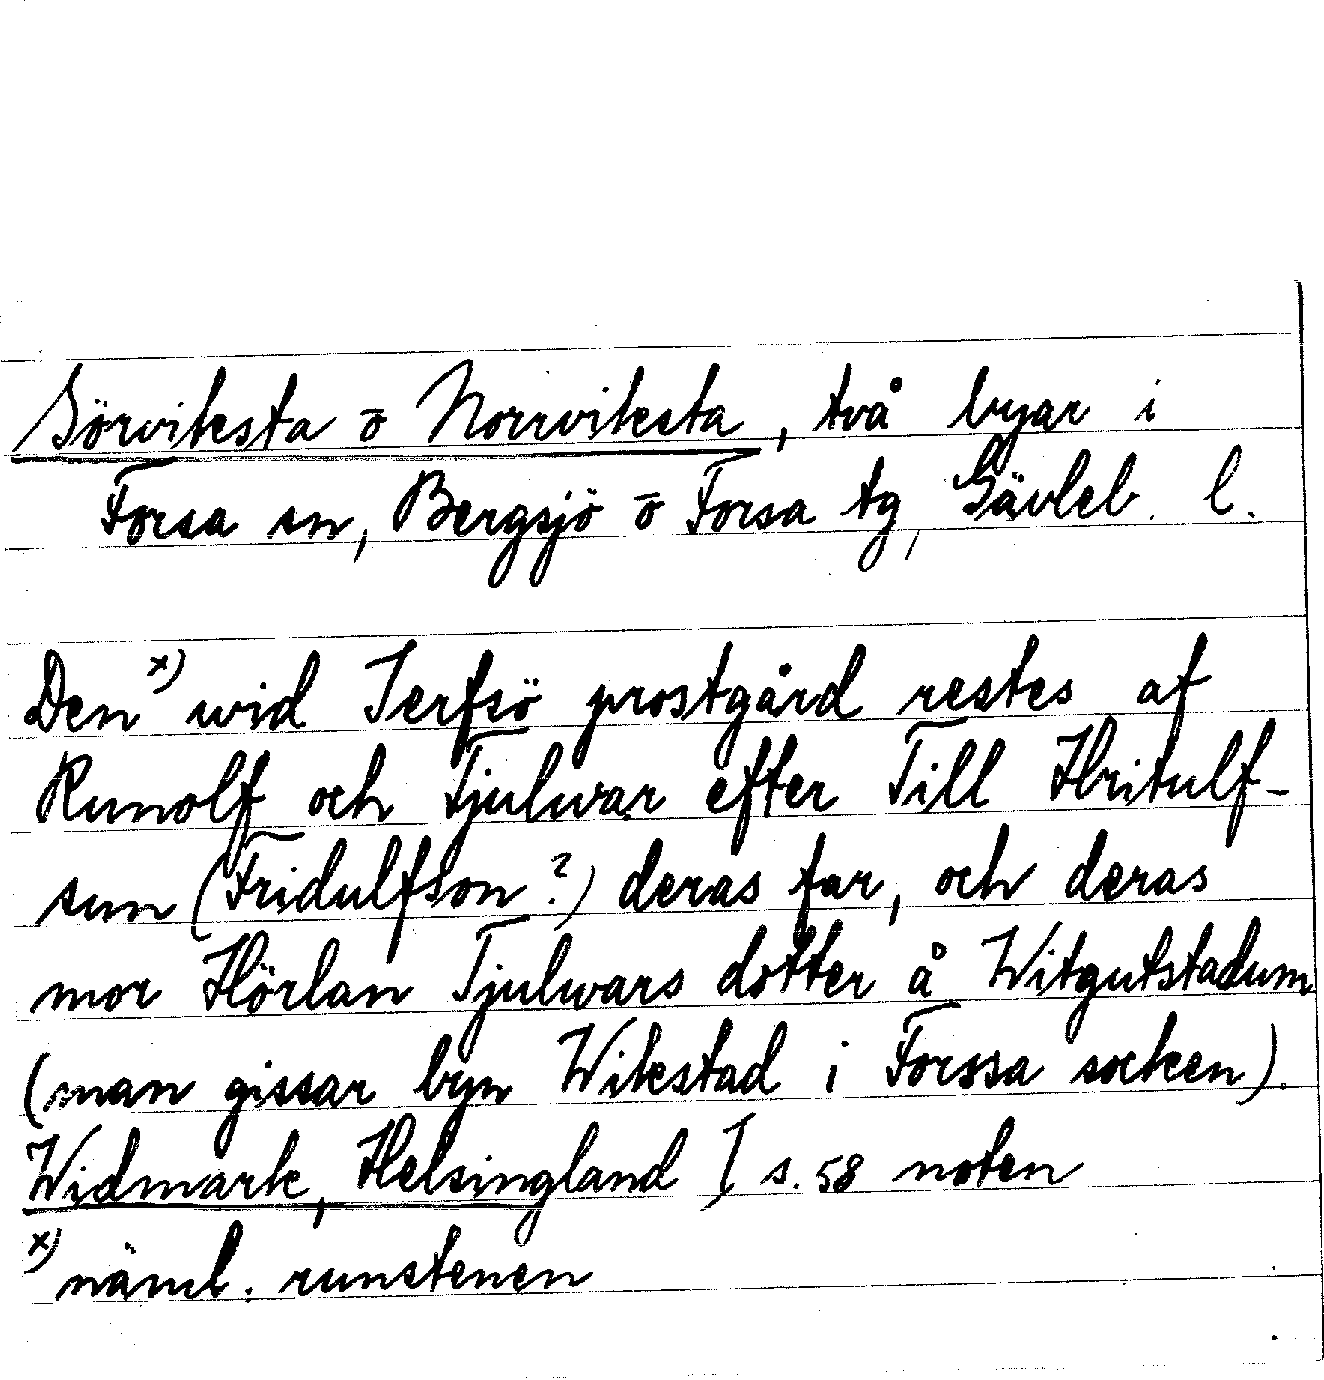 Sörvitesta o Norrvitesta, två byar i
Forsa sn, Bergsjö o Forsa tg, Gävleb. l.
Den x) wid Jerfsö prostgård restes af
Runolf och Tjulwar efter Till Hritulf-
sun (Fridulfson?) deras far, och deras
mor Hörlan Tjulwars dotter å Witgutstadum
(man gissar byn Witestad i Forssa socken).
Widmark, Helsingland I s. 58 noten
x) näml. runstenen